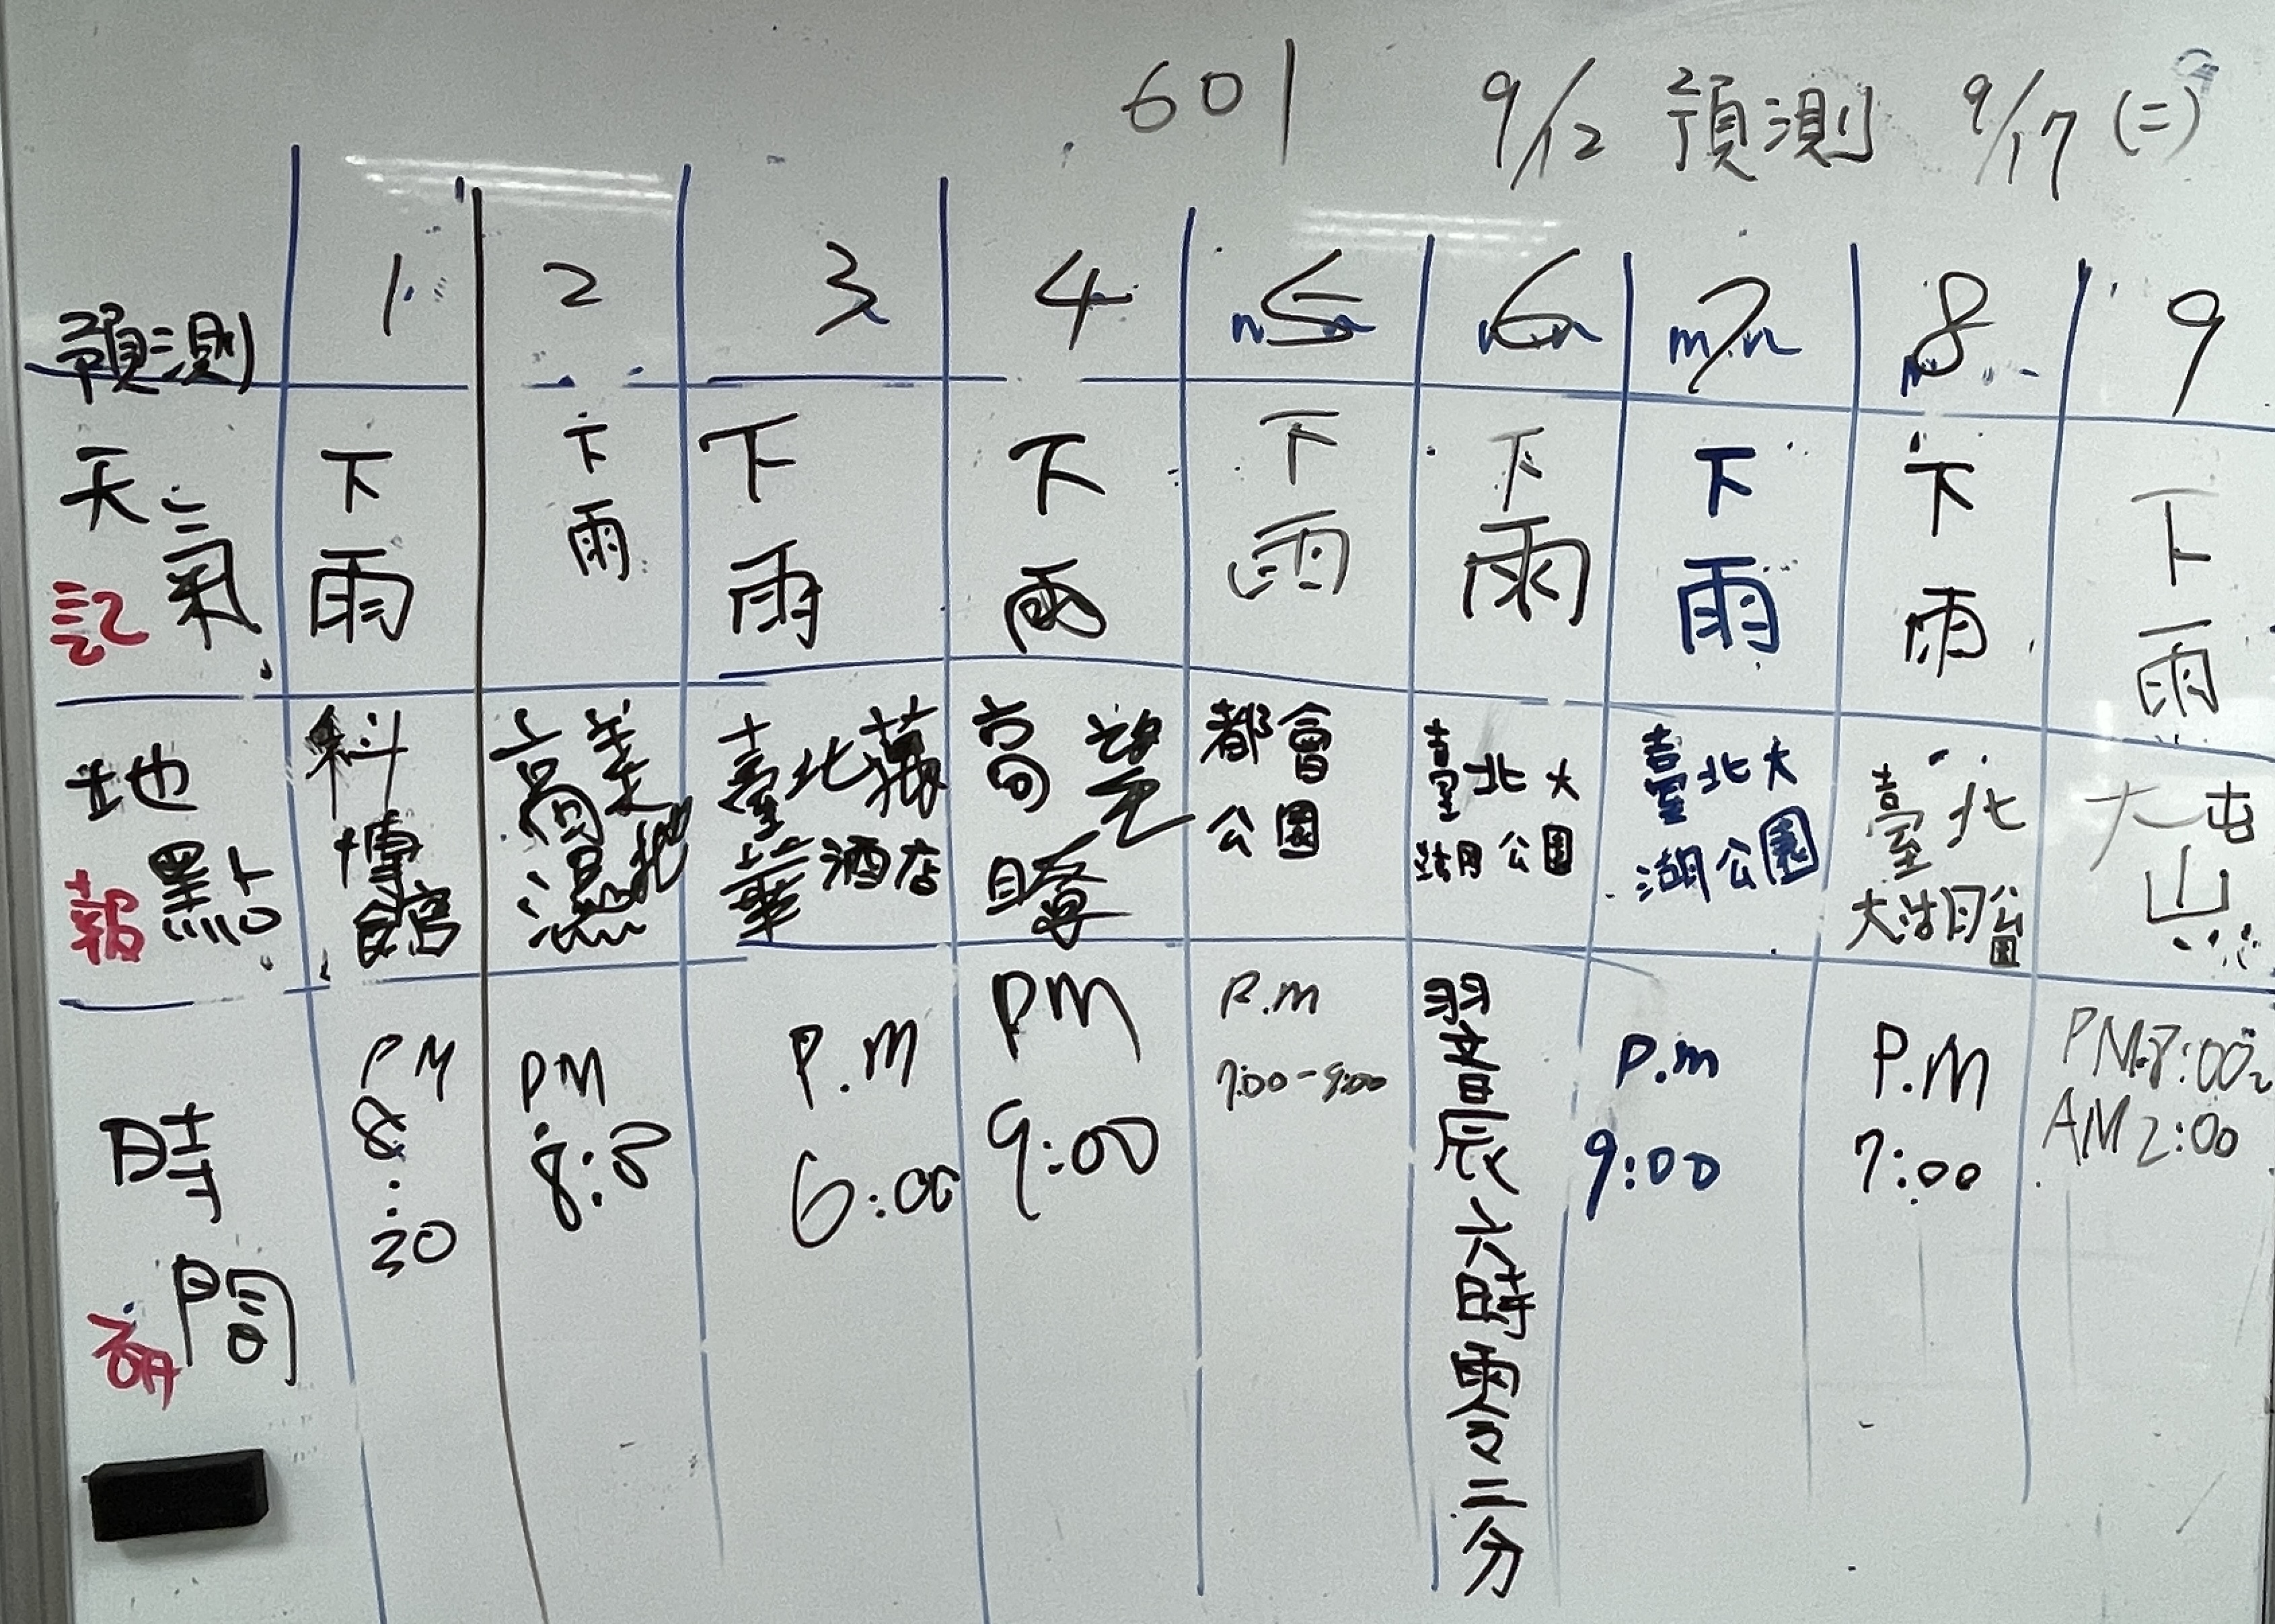 601 9/12 預測 9/17 (二)
預測 1 2 3 4 5 6 7 8 9
天氣 下雨 下雨 下雨 下雨 下雨 下雨 下雨 下雨 下雨
記
地點 科博館 高美濕地 臺北萬華酒店 高 都會公園 臺北大湖公園 臺北大湖公園 臺北大湖公園 大屯山
報
時間 PM 8:30 PM 8:8 P.M 6:00 PM 9:00 P.m 7:00-9:00 六時零二分 P.m 9:00 P.M 7:00 PM 8:00 AM 2:00
min